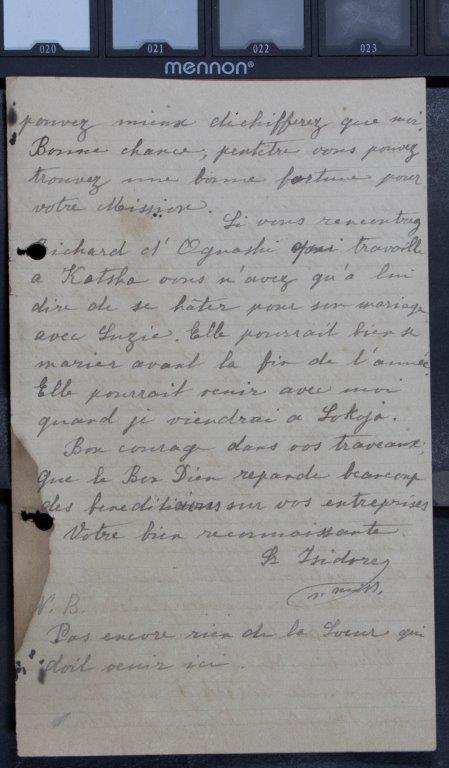 020 021 022 023
mennon®
pouvez mieux dichifferez que moi.
Bonne chance, peutetre vous pouvez
trouvez une bonne fortune pour
votre Mission.
Si vous rencontrez
Richard d'Ogwashi qui travaille
a Katsha vous n'avez qu'à lui
dire de se hâter pour son mariage
avec Suzie. Elle pourrait bien se
marier avant la fin de l'année.
Elle pourrait venir avec moi
quand je viendrai a Lokoja.
Bon courage dans vos traveaux,
que le Bon Dieu repande beaucoup
des beneditions sur vos entreprises
Votre bien reconnaissante
Sr Isidore
N. B.
Pas encore rien de la Soeur qui
doit venir ici.